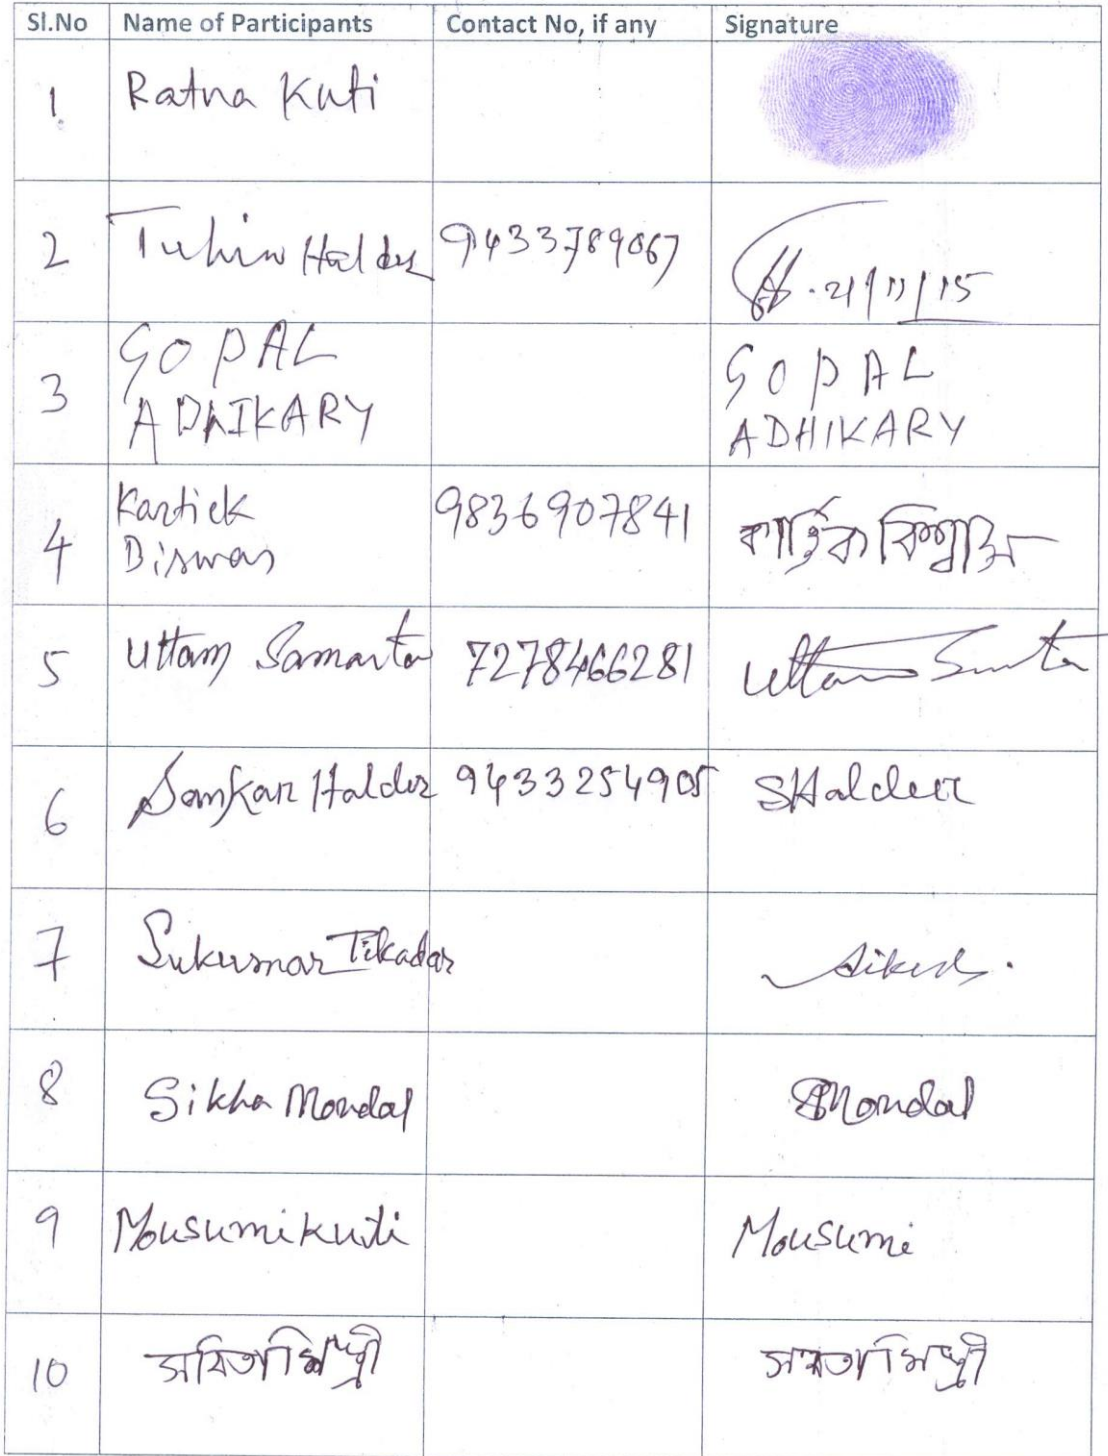 Sl.No Name of Participants Contact No, if any Signature
1. Ratna Kuti
2 Tuhin Halder 9433789067 21/11/15
3 GOPAL
ADhIKARY GOPAL
ADHIKARY
4 Kartick
Biswas 9836907841 কার্তিক বিশ্বাস
5 Uttam Samanta 7278466281 Uttam Samanta
6 Sankar Halder 9433254905 SHalder
7 Sukumar Tikadar
8 Sikha Mondal SMondal
9 Mousumi kuti Mousumi
10 সবিতা মিস্ত্রী সবিতা মিস্ত্রী